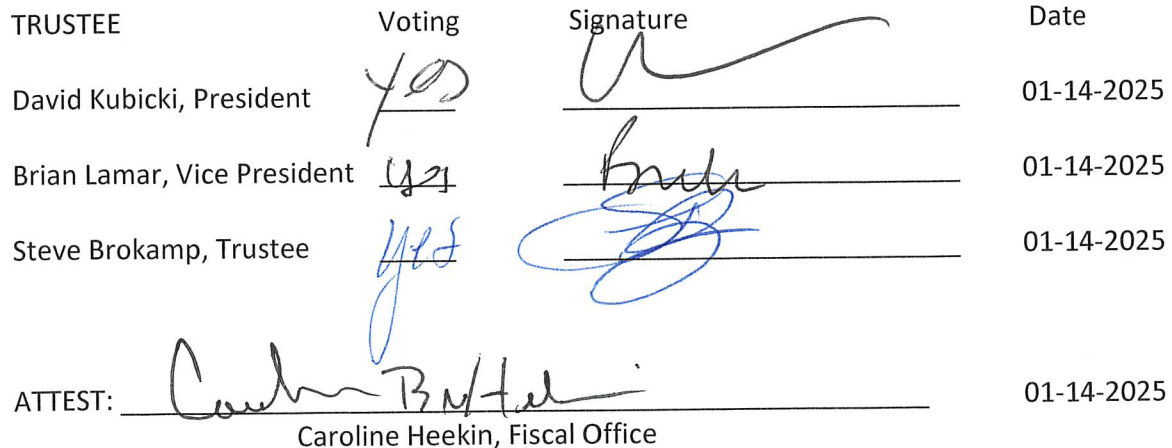 TRUSTEE Voting Signature Date
David Kubicki, President Yes 01-14-2025
Brian Lamar, Vice President yes 01-14-2025
Steve Brokamp, Trustee yes 01-14-2025
ATTEST: 01-14-2025
Caroline Heekin, Fiscal Office